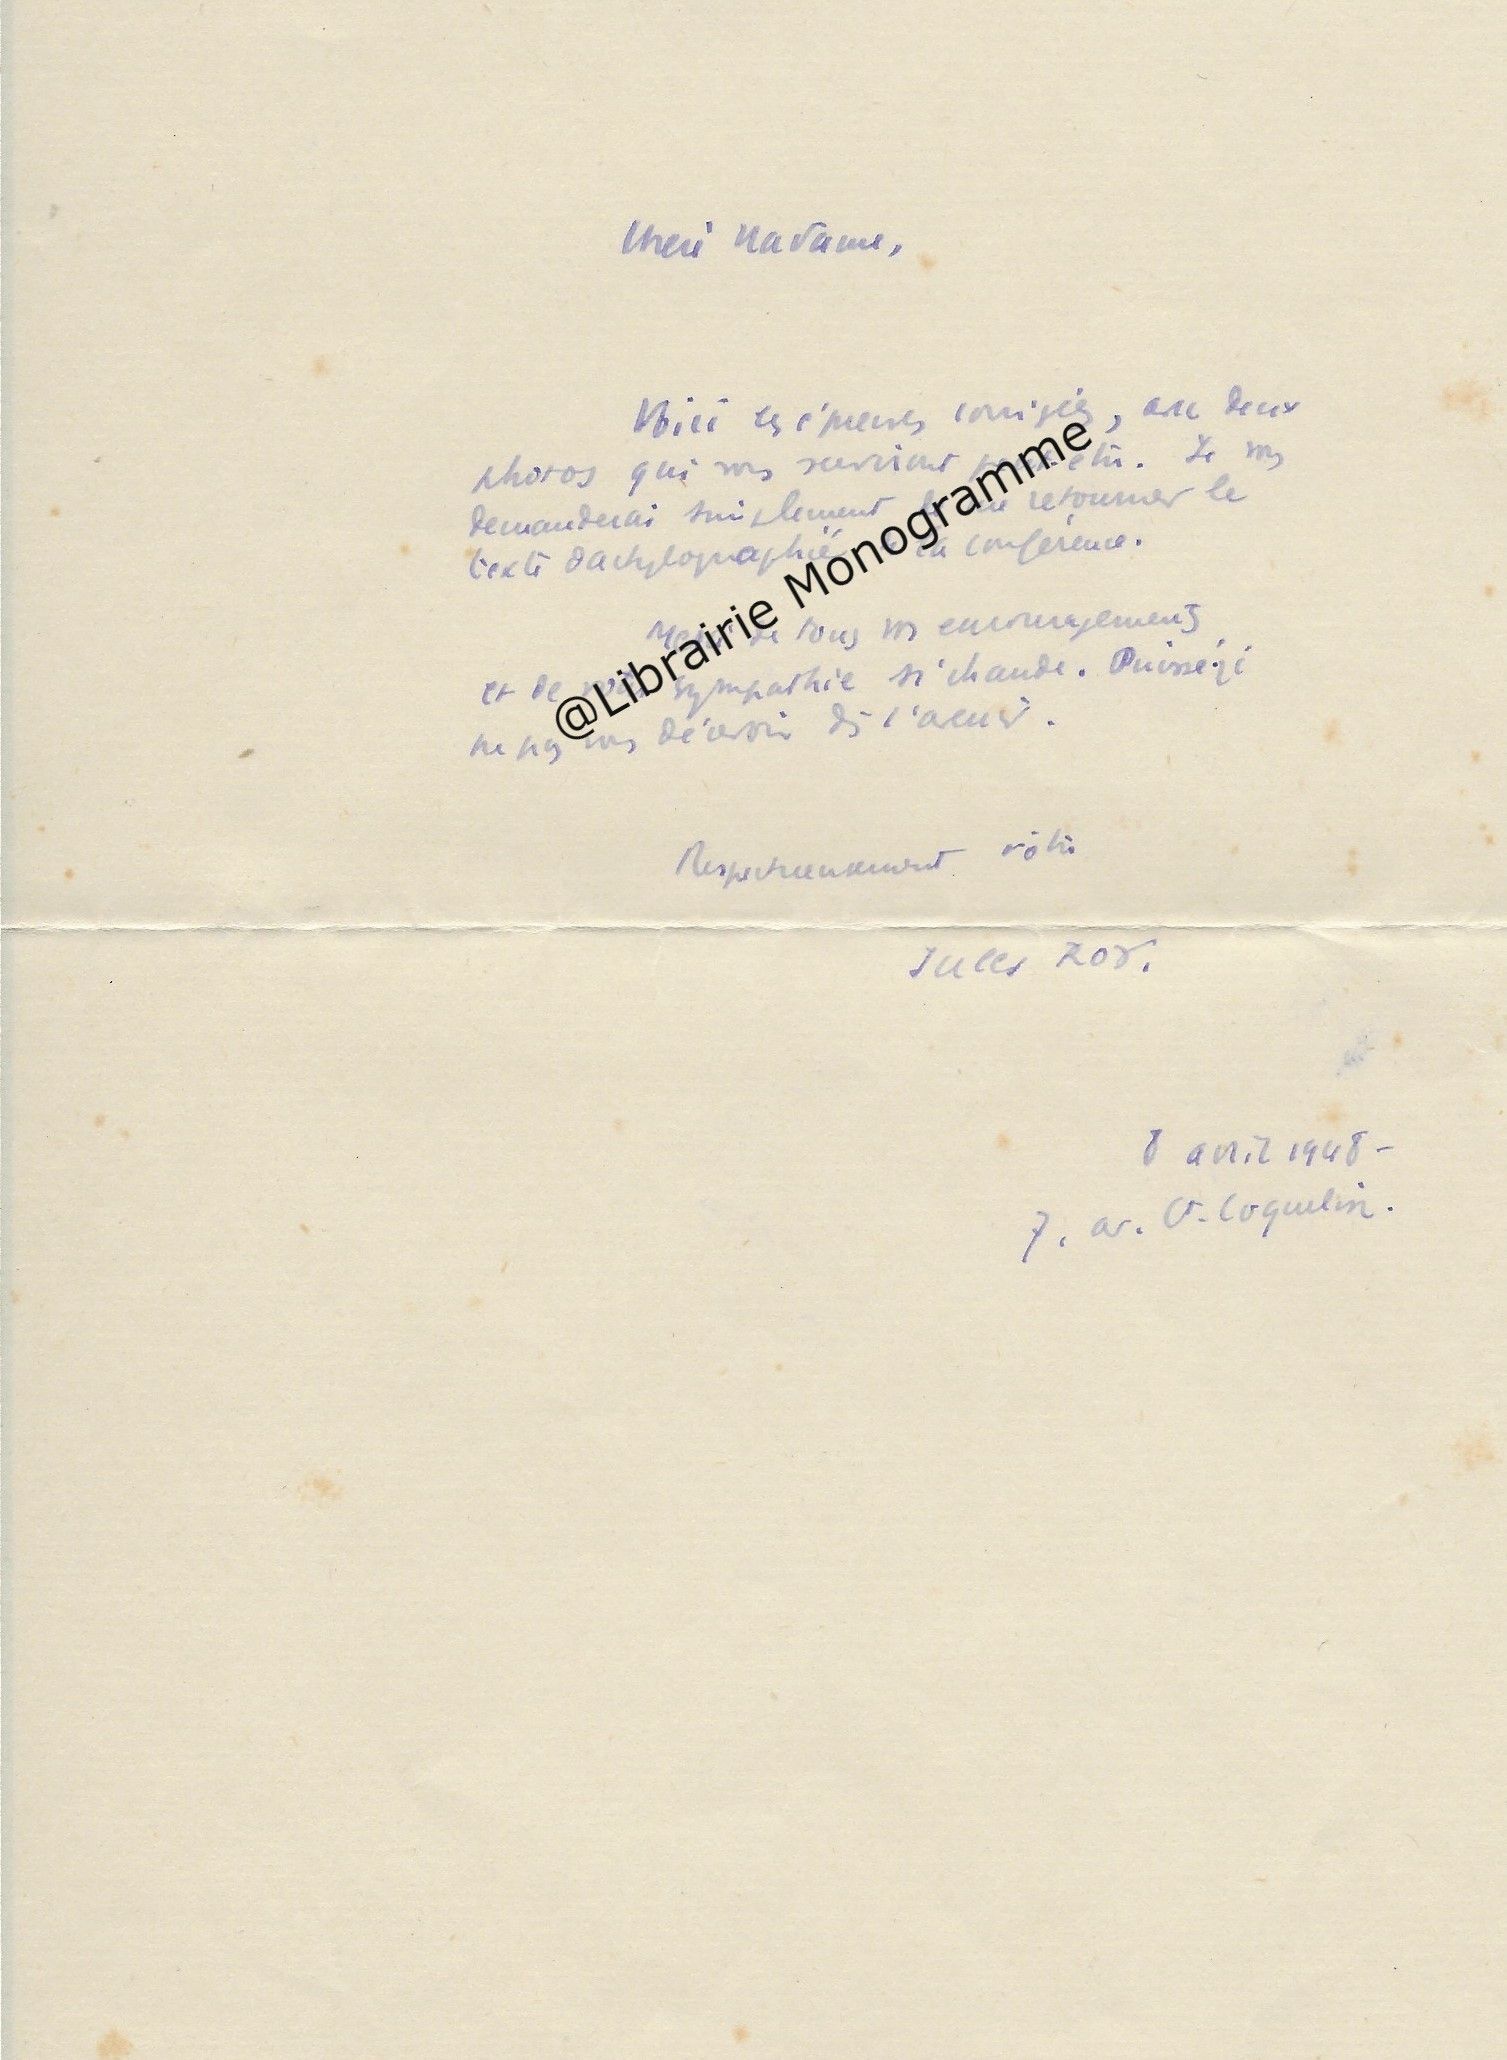 Chère Madame,
Voici les épreuves corrigées, avec deux
photos qui vous serviront peut-être. Je vous
demanderai simplement de me retourner le
texte dactylographié de la conférence.
Merci de tous vos encouragements
et de votre sympathie si chaude. Puissé-je
ne pas vous décevoir ds l'avenir.
@Librairie Monogramme
Respectueusement vôtre
Jules Roy.
8 avril 1948 -
7, av. C. Coquelin.